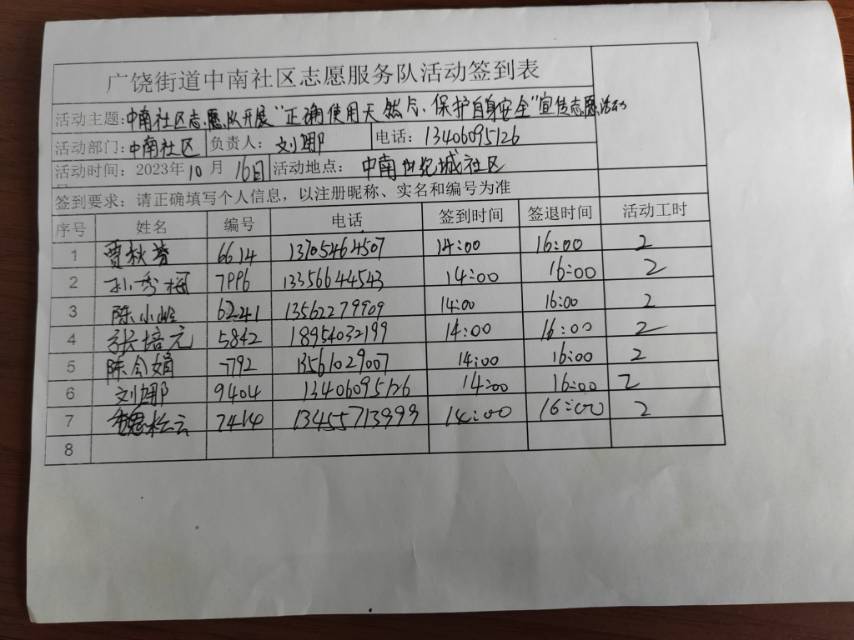 广饶街道中南社区志愿服务队活动签到表
活动主题：中南社区志愿队开展“正确使用天然气、保护自身安全”宣传志愿活动
活动部门：中南社区 负责人：刘娜 电话：13406095126
活动时间：2023年10月16日 活动地点：中南世纪城社区
签到要求：请正确填写个人信息，以注册昵称、实名和编号为准
序号 姓名 编号 电话 签到时间 签退时间 活动工时
1 贾秋芳 6614 13705464507 14:00 16:00 2
2 孙秀梅 7996 13356644543 14:00 16:00 2
3 陈小 6241 13562279909 14:00 16:00 2
4 张培元 5842 18954032199 14:00 16:00 2
5 陈令娟 7792 13561029007 14:00 16:00 2
6 刘娜 9404 13406095126 14:00 16:00 2
7 魏松云 7414 13455713999 14:00 16:00 2
8